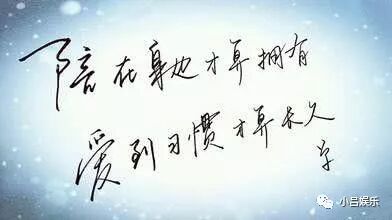 陪在身边才算拥有
爱到习惯才算长久
小吕娱乐